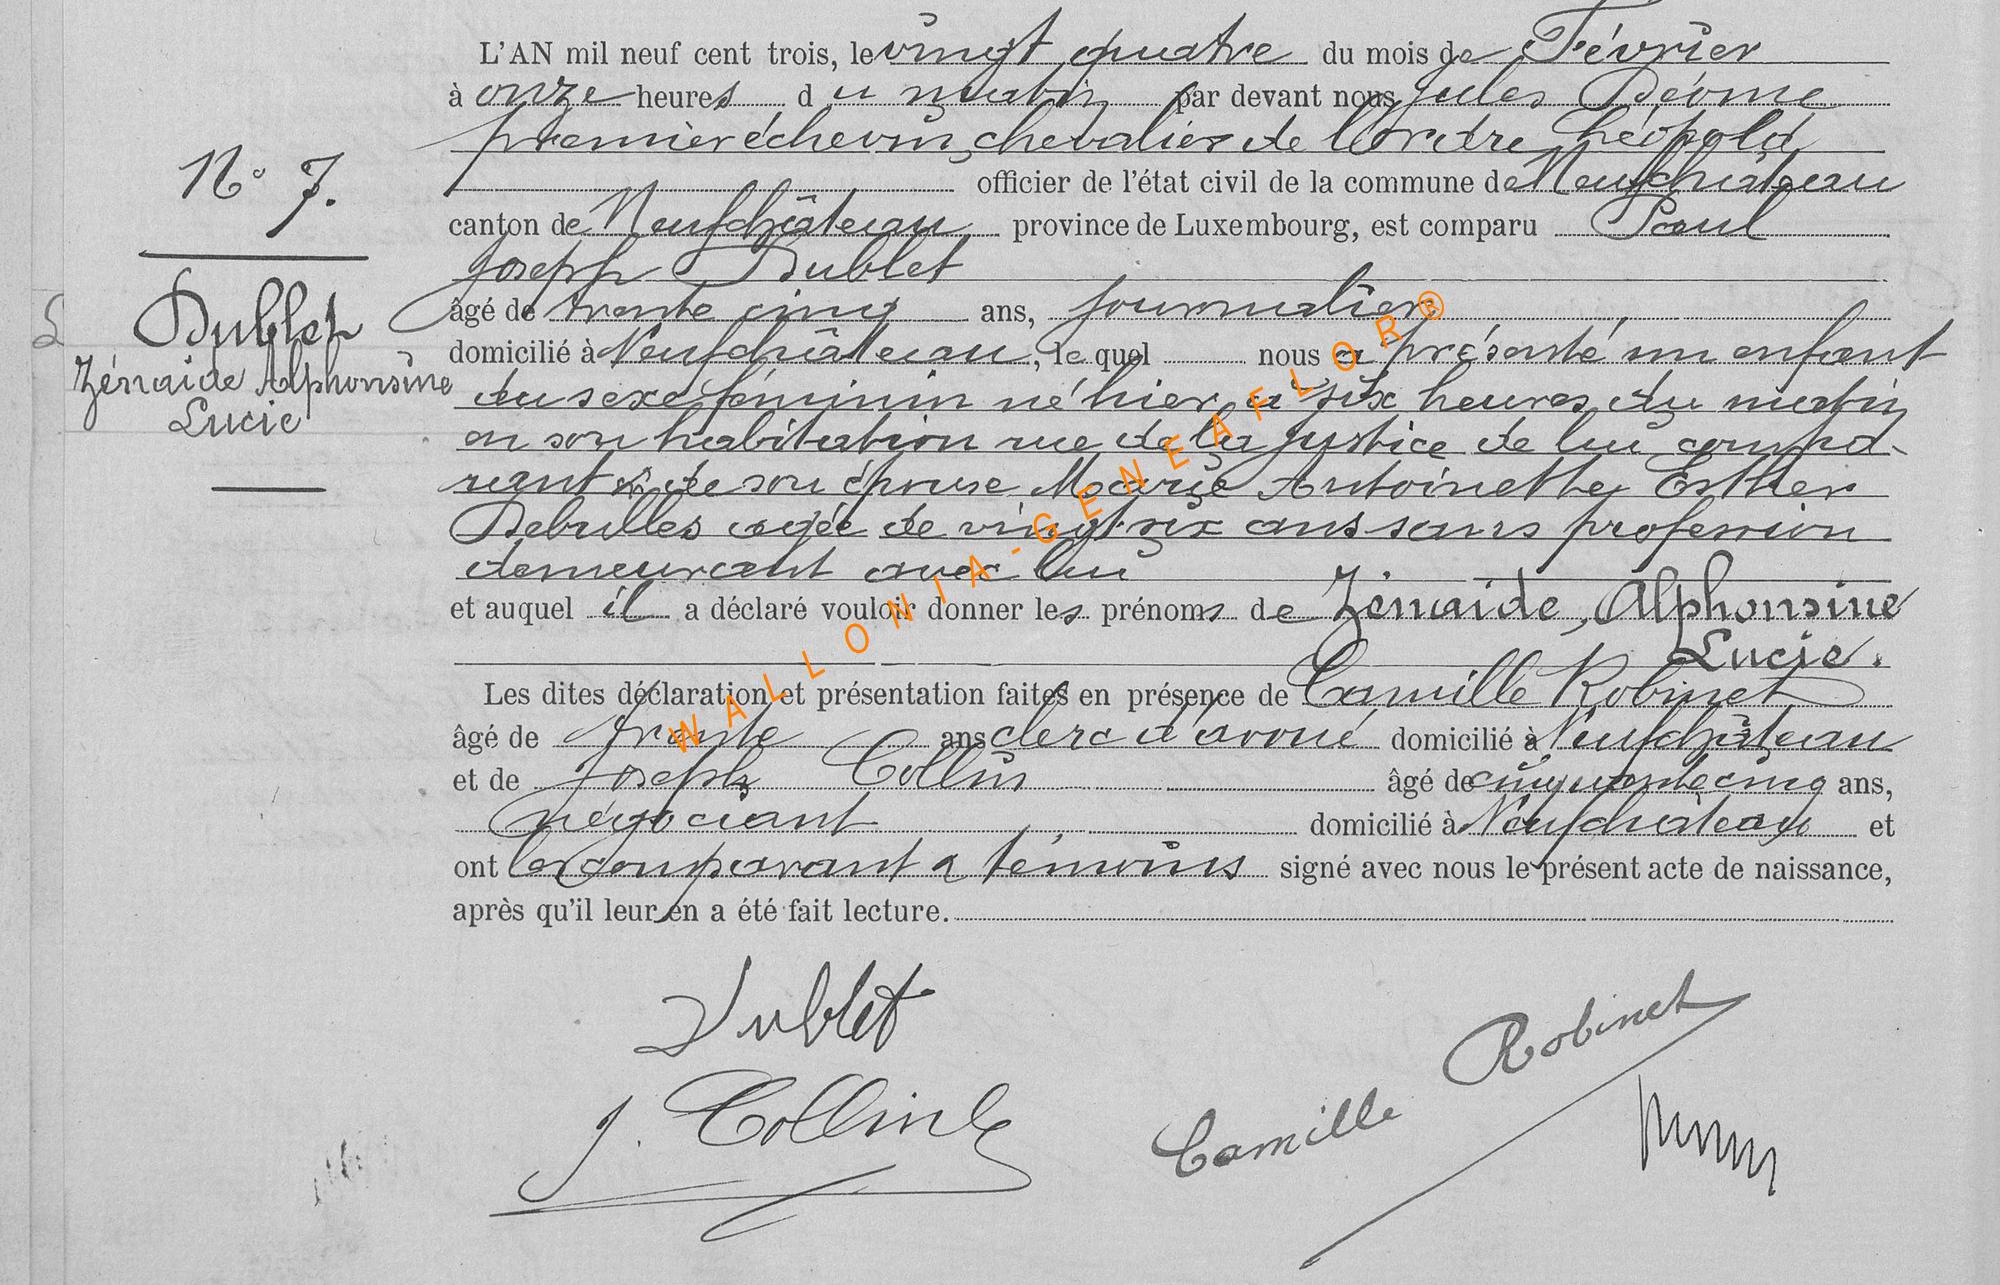 L'AN mil neuf cent trois, le vingt quatre du mois de Février
à onze heures du matin par devant nous Jules Déome
premier échevin, chevalier de l'Ordre Léopold
officier de l'état civil de la commune de Neufchâteau
canton de Neufchâteau province de Luxembourg, est comparu Paul
Joseph Dublet
âgé de trente cinq ans, journalier
domicilié à Neufchâteau, lequel nous a présenté un enfant
du sexe féminin né hier à six heures du matin
en son habitation rue de la Justice de lui compa-
rant & de son épouse Marie Antoinette Esther
Debulles agée de vingt six ans sans profession
demeurant avec lui
et auquel il a déclaré vouloir donner les prénoms de Zénaide, Alphonsine
Lucie.
Les dites déclaration et présentation faites en présence de Camille Robinet
âgé de trente ans clerc d'avoué domicilié à Neufchâteau
et de Joseph Collin âgé de cinquante cinq ans,
négociant domicilié à Neufchateau et
ont les comparant & témoins signé avec nous le présent acte de naissance,
après qu'il leur en a été fait lecture.
N° 7.
Dublet
Zénaide Alphonsine
Lucie
WALLONIA-GENEAFLOR®
Dublet
J. Collin
Camille Robinet